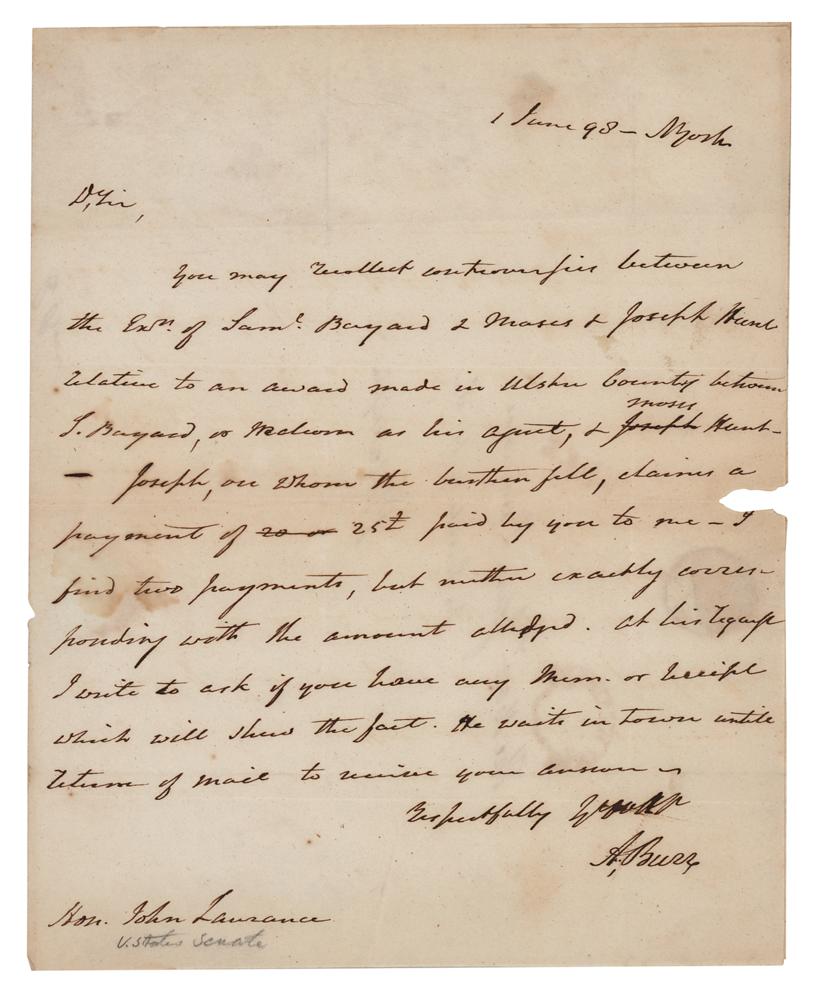 1 June 98 — NYork
D, Sir,
You may recollect controversies between
the Exrs. of Saml. Bayard & Moses & Joseph Hunt
relative to an award made in Ulster County between
S. Bayard, or as his agent, & Joseph moses Hunt —
— Joseph, on whom the burthen fell, claims a
payment of 20 or 25£ paid by you to me — I
find two payments, but neither exactly corres-
ponding with the amount alledged. At his request
I write to ask if you have any Mem. or Receipt
which will shew the fact. He waits in town until
return of mail to receive your answer —
Respectfully
A, Burr
Hon. John Laurance
U. States Senate